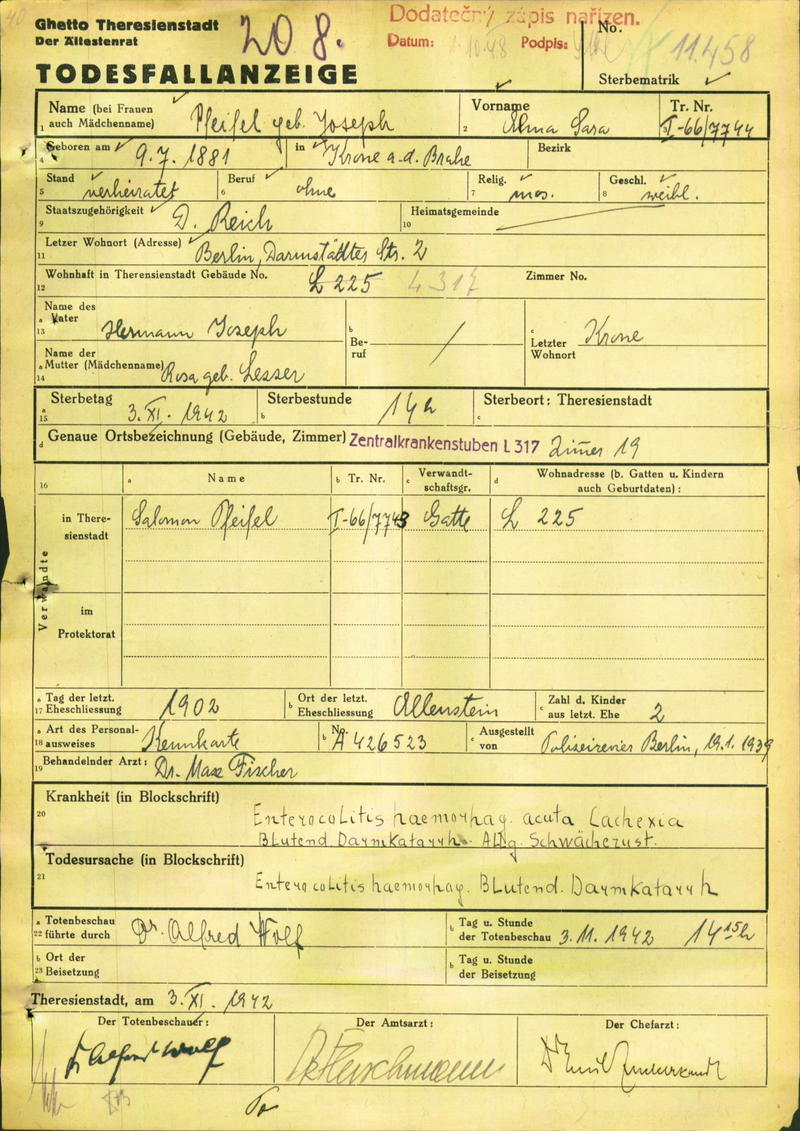 Ghetto Theresienstadt
Der Ältestenrat
208.
Dodatečný zápis nařízen.
Datum: Podpis:
No. 11.458
TODESFALLANZEIGE
Sterbematrik
Name (bei Frauen auch Mädchenname) Pfeifel geb. Joseph
1
Vorname Alma Sara
2
Tr. Nr. I-66/7744
Geboren am 9.7.1881
4
in Krone a.d. Brahe
Bezirk
Stand verheiratet
5
Beruf ohne
6
Relig. mos.
7
Geschl. weibl.
8
Staatszugehörigkeit D. Reich
9
Heimatsgemeinde
10
Letzer Wohnort (Adresse) Berlin, Darmstädter Str. 2
11
Wohnhaft in Therensienstadt Gebäude No. L 225 L 317
12
Zimmer No.
Name des Vater Hermann Joseph
a 13
b Beruf /
c Letzter Wohnort Krone
Name der Mutter (Mädchenname) Rosa geb. Lesser
a 14
Sterbetag 3. XI. 1942
a 15
Sterbestunde 14 h
b
Sterbeort: Theresienstadt
c
d Genaue Ortsbezeichnung (Gebäude, Zimmer) Zentralkrankenstuben L 317 Zimer 19
16
a Name
b Tr. Nr.
c Verwandt-schaftsgr.
d Wohnadresse (b. Gatten u. Kindern auch Geburtdaten) :
Verwandte
in There-sienstadt
Salomon Pfeifel I-66/7743 Gatte L 225
im Protektorat
a 17 Tag der letzt. Eheschliessung 1902
b Ort der letzt. Eheschliessung Allenstein
c Zahl d. Kinder aus letzt. Ehe 2
a 18 Art des Personal-ausweises Kennkarte
b No. A 426523
c Ausgestellt von Polizeirevier Berlin, 19.1.1939
19 Behandelnder Arzt: Dr. Max Fischer
Krankheit (in Blockschrift)
20
Enterocolitis haemorhag. acuta Cachexia
Blutend. Darmkatarrh. Allg. Schwächezust.
Todesursache (in Blockschrift)
21
Enterocolitis haemorhag. Blutend. Darmkatarrh
a 22 Totenbeschau führte durch Dr. Alfred Wolf
b Tag u. Stunde der Totenbeschau 3.11.1942 14 15h
b 23 Ort der Beisetzung
b Tag u. Stunde der Beisetzung
Theresienstadt, am 3. XI. 1942
Der Totenbeschauer:
Dr Alfred Wolf
Der Amtsarzt:
Der Chefarzt: